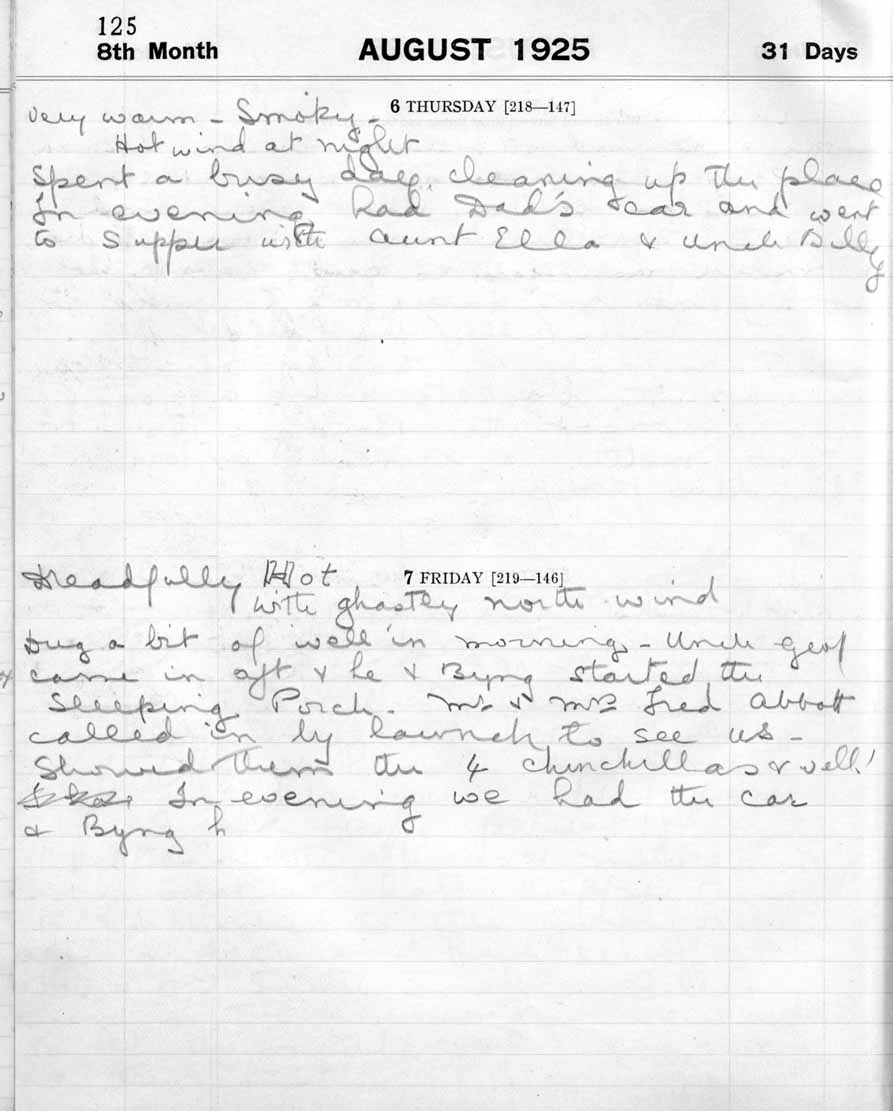 125
8th Month AUGUST 1925 31 Days
6 THURSDAY [218—147]
Very warm - Smoky -
Hot wind at night
Spent a busy day, cleaning up the place
In evening had Dad's car and went
to supper with Aunt Ella & Uncle Billy
7 FRIDAY [219—146]
Dreadfully Hot
with ghastly north wind
Dug a bit of well in morning - Uncle Geof
came in aft & he & Byng started the
Sleeping Porch. Mr & Mrs Fred Abbott
called in by launch to see us -
Showed them the 4 chinchillas & well!
In evening we had the car
& Byng h